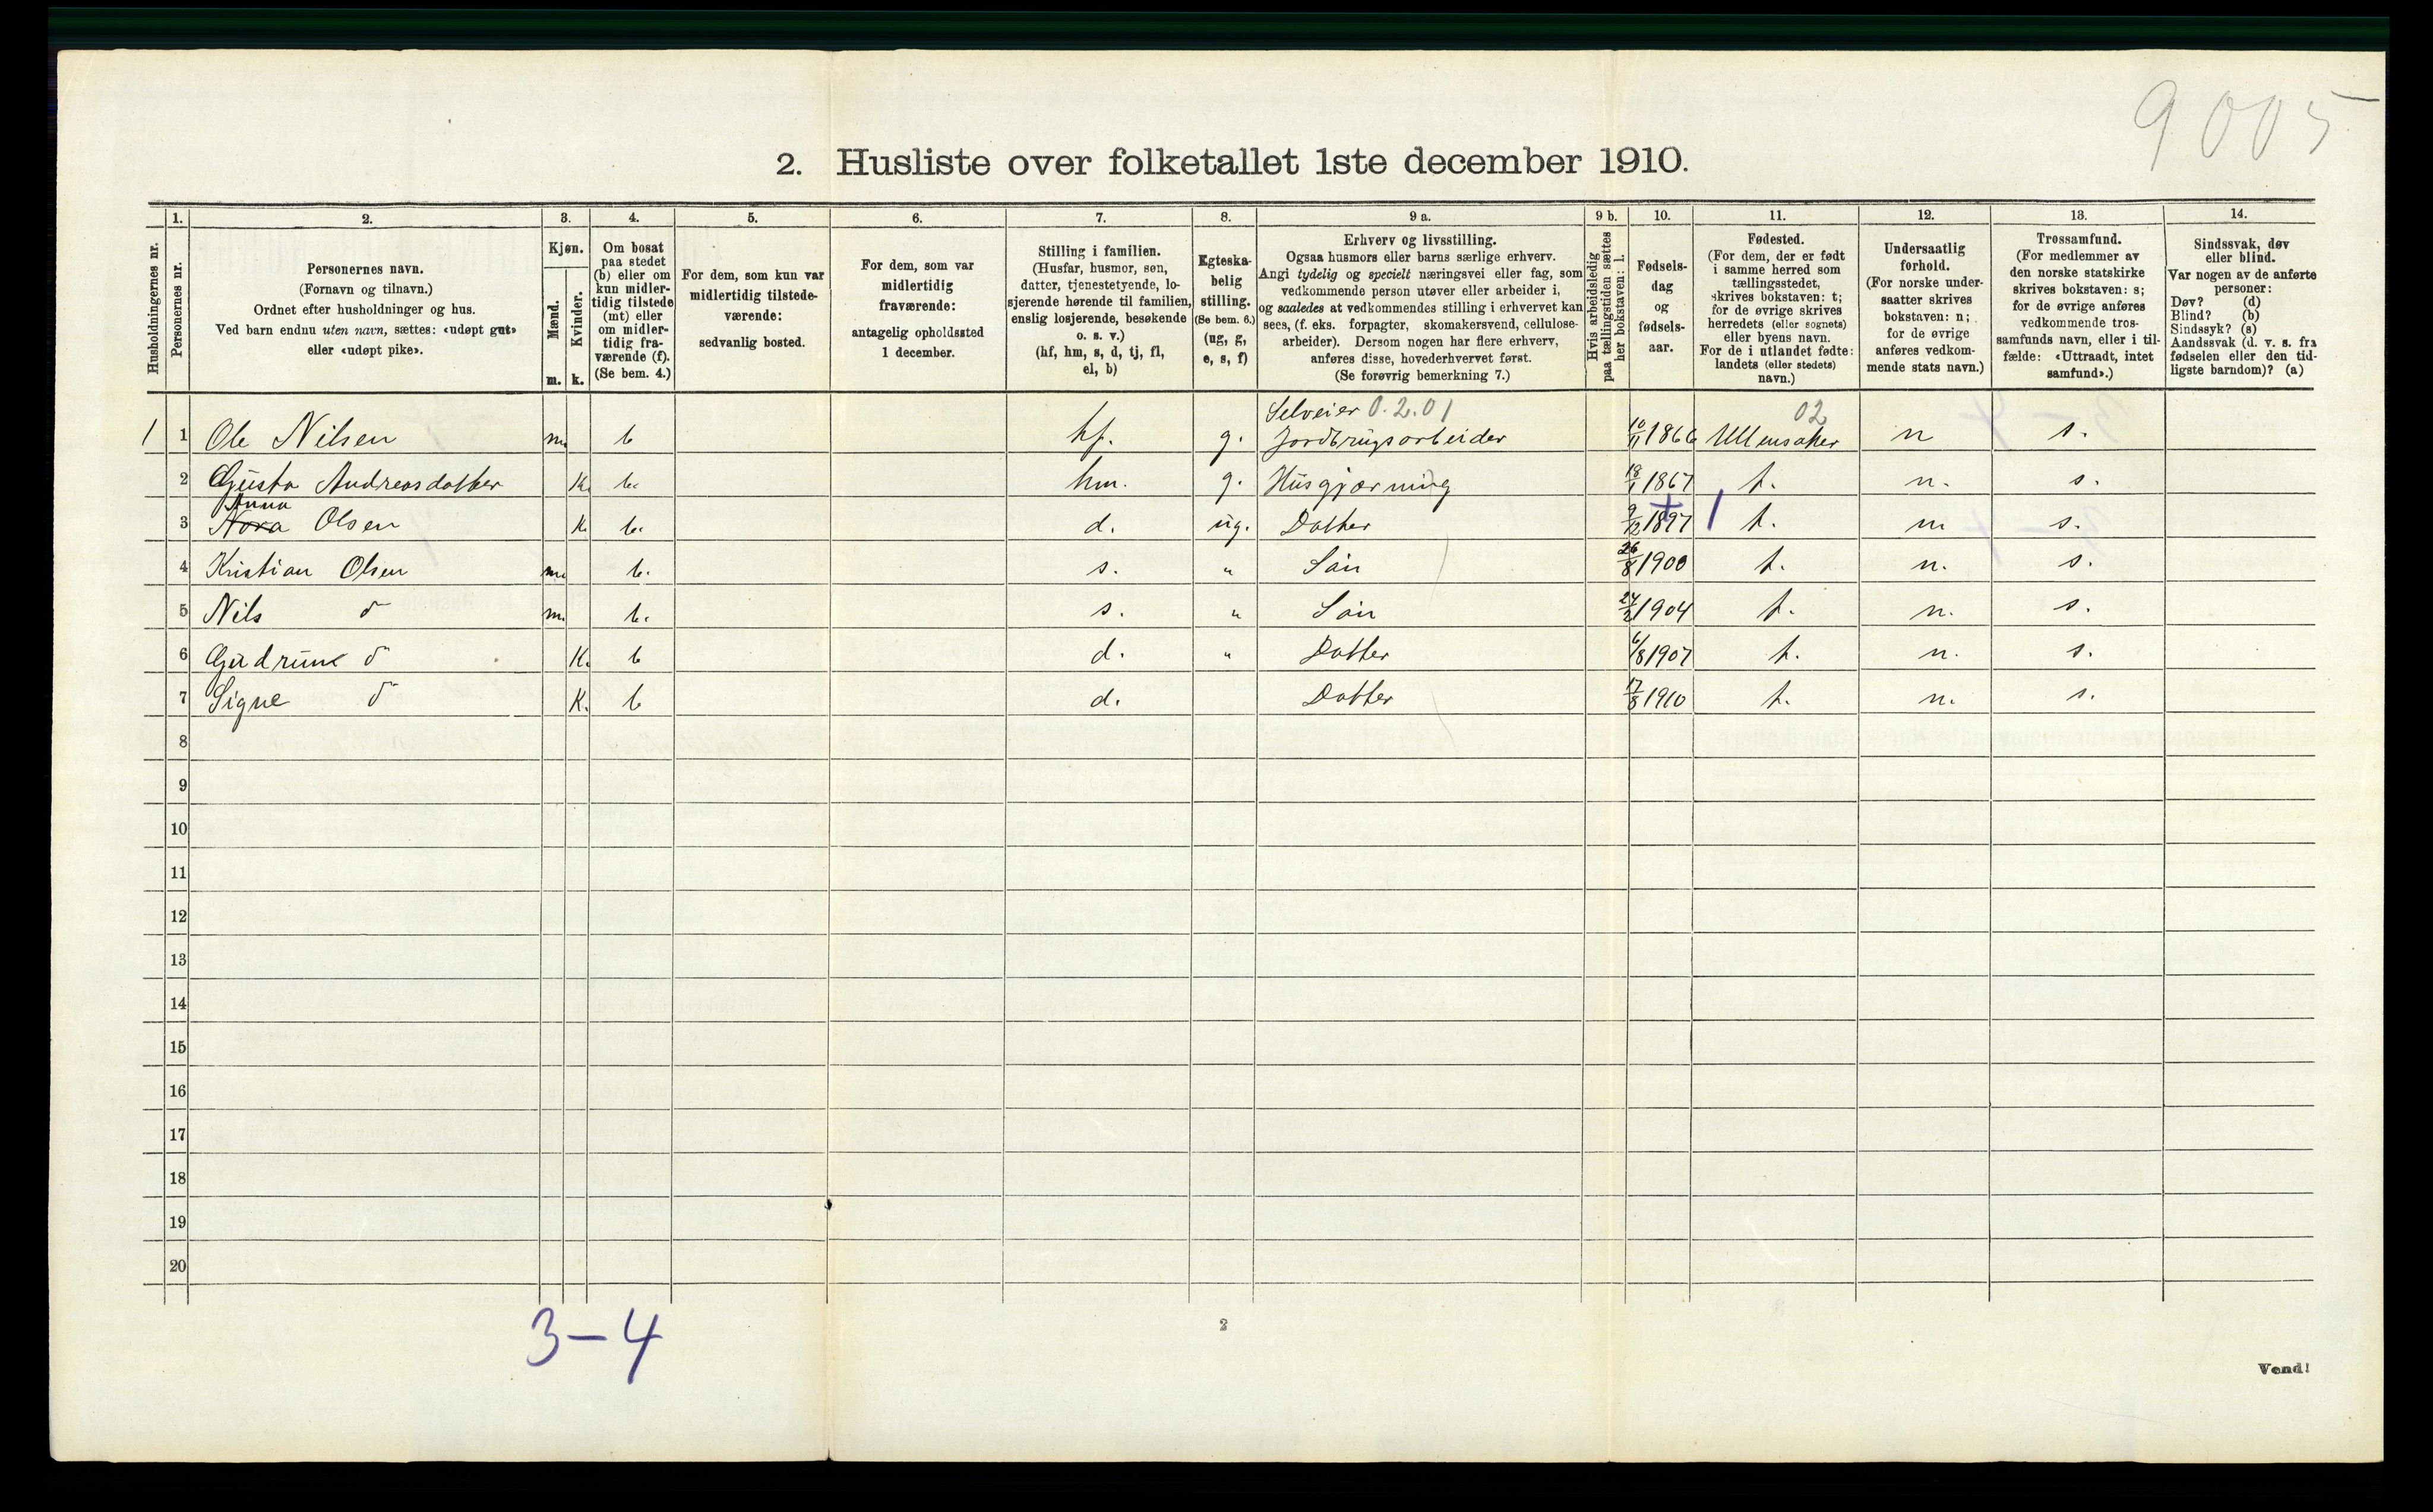 9005
2. Husliste over folketallet 1ste december 1910.
Husholdningernes nr.
1.
Personernes nr.
2.
Personernes navn.
(Fornavn og tilnavn.)
Ordnet efter husholdninger og hus.
Ved barn endnu uten navn, sættes: «udøpt gut»
eller «udøpt pike».
3.
Kjøn.
Mænd.
m.
Kvinder.
k.
4.
Om bosat
paa stedet
(b) eller om
kun midler-
tidig tilstede
(mt) eller
om midler-
tidig fra-
værende (f).
(Se bem. 4.)
5.
For dem, som kun var
midlertidig tilstede-
værende:
sedvanlig bosted.
6.
For dem, som var
midlertidig
fraværende:
antagelig opholdssted
1 december.
7.
Stilling i familien.
(Husfar, husmor, søn,
datter, tjenestetyende, lo-
sjerende hørende til familien,
enslig losjerende, besøkende
o. s. v.)
(hf, hm, s, d, tj, fl,
el, b)
8.
Egteska-
belig
stilling.
(Se bem. 6.)
(ug, g,
e, s, f)
9 a.
Erhverv og livsstilling.
Ogsaa husmors eller barns særlige erhverv.
Angi tydelig og specielt næringsvei eller fag, som
vedkommende person utøver eller arbeider i,
og saaledes at vedkommendes stilling i erhvervet kan
sees, (f. eks. forpagter, skomakersvend, cellulose-
arbeider). Dersom nogen har flere erhverv,
anføres disse, hovederhvervet først.
(Se forøvrig bemerkning 7.)
9 b.
Hvis arbeidsledig
paa tællingstiden sættes
her bokstaven: l.
10.
Fødsels-
dag
og
fødsels-
aar.
11.
Fødested.
(For dem, der er født
i samme herred som
tællingsstedet,
skrives bokstaven: t;
for de øvrige skrives
herredets (eller sognets)
eller byens navn.
For de i utlandet fødte:
landets (eller stedets)
navn.)
12.
Undersaatlig
forhold.
(For norske under-
saatter skrives
bokstaven: n;
for de øvrige
anføres vedkom-
mende stats navn.)
13.
Trossamfund.
(For medlemmer av
den norske statskirke
skrives bokstaven: s;
for de øvrige anføres
vedkommende tros-
samfunds navn, eller i til-
fælde: «Uttraadt, intet
samfund».)
14.
Sindssvak, døv
eller blind.
Var nogen av de anførte
personer:
Døv? (d)
Blind? (b)
Sindssyk? (s)
Aandssvak (d. v. s. fra
fødselen eller den tid-
ligste barndom)? (a)
Selveier 0.2.01 02
1 1 Ole Nilsen m. b hf. g. Jordbrugsarbeider 10/11 1866 Ullensaker n s.
2 Gusta Andreasdatter K. b. hm. g. Husgjærning 18/1 1867 t. n. s.
Anna
3 Nora Olsen K. b. d. ug. Datter 9/12 1897 t. n s.
4 Kristian Olsen m. b. s. " Søn 26/8 1900 t. n. s.
5 Nils do m. b. s. " Søn 24/2 1904 t. n. s.
6 Gudrun do K. b d. " Datter 6/8 1907 t. n. s.
7 Signe do K. b d. Datter 17/8 1910 t. n. s.
8
9
10
11
12
13
14
15
16
17
18
19
20
3-4
2
Vend!